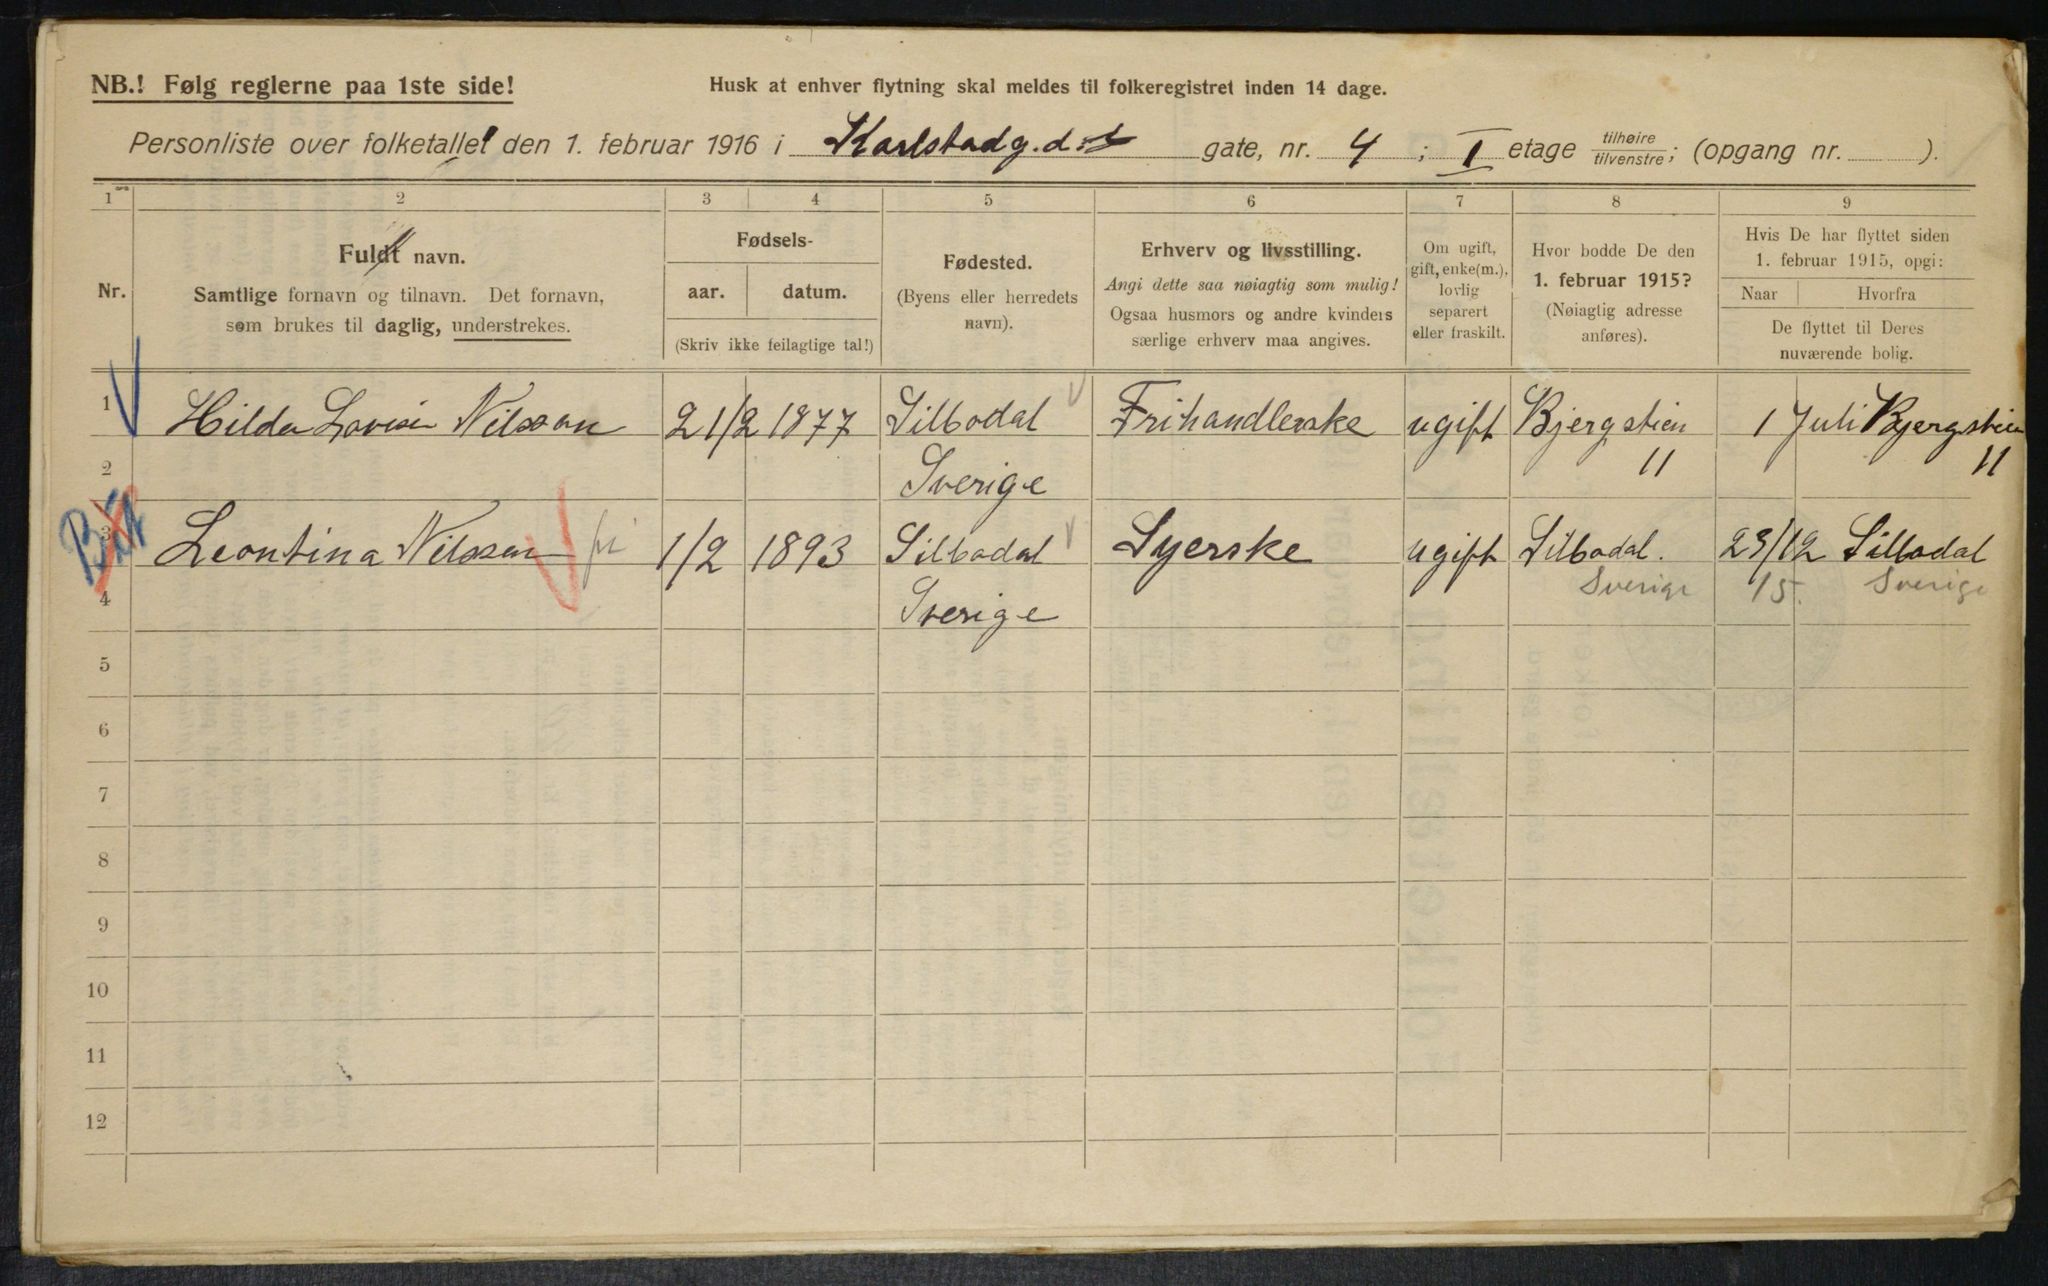 NB.! Følg reglerne paa 1ste side!
Husk at enhver flytning skal meldes til folkeregistret inden 14 dage.
Personliste over folketallet den 1. februar 1916 i Karlstadg. gate, nr. 4 ; I etage tilhøire / tilvenstre; (opgang nr. ).
1 2 3 4 5 6 7 8 9
Nr.
Fuldt navn.
Samtlige fornavn og tilnavn. Det fornavn,
som brukes til daglig, understrekes.
Fødsels-
aar. datum.
(Skriv ikke feilagtige tal!)
Fødested.
(Byens eller herredets
navn).
Erhverv og livsstilling.
Angi dette saa nøiagtig som mulig!
Ogsaa husmors og andre kvinders
særlige erhverv maa angives.
Om ugift,
gift, enke(m.),
lovlig
separert
eller fraskilt.
Hvor bodde De den
1. februar 1915?
(Nøiagtig adresse
anføres).
Hvis De har flyttet siden
1. februar 1915, opgi:
Naar Hvorfra
De flyttet til Deres
nuværende bolig.
1 Hilda Lovise Nilsson 21/2 1877 Silbodal Frihandlerske ugift Bjergstien 1 Juli Bjergstien
2 Sverige 11 11
3 Leontina Nilsson 1/2 1893 Silbodal Syerske ugift Silbodal. 23/12 Silbodal
4 Sverige Sverige 15. Sverige
5
6
7
8
9
10
11
12